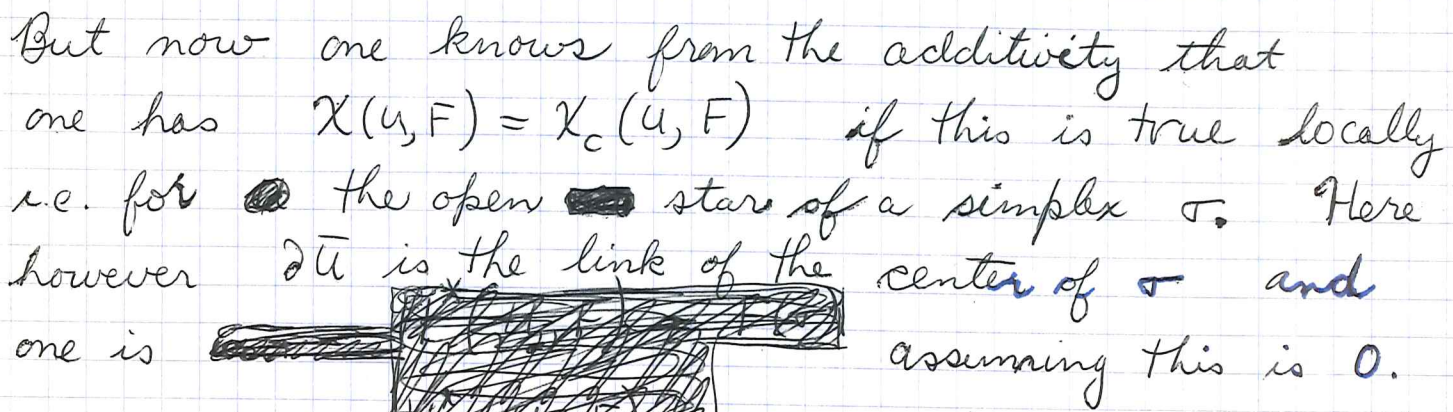 But now one knows from the additivity that
one has χ(U, F) = χ_c(U, F) if this is true locally
i.e. for the open star of a simplex σ. Here
however ∂Ū is the link of the center of σ and
one is assuming this is 0.